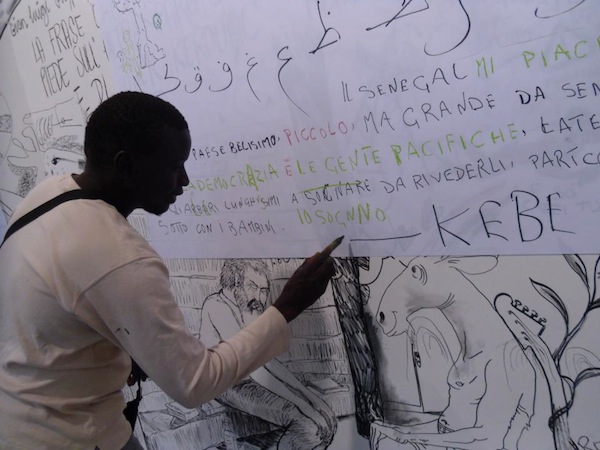 LA FRASE
PIEDE SULL'
ط ظ ع غ ف ق
IL SENEGAL MI PIAC
PAESE BELISIMO, PICCOLO, MA GRANDE DA SEN
ADEMOCRAZIA E LE GENTE PACIFICHE, LATE
ALBERI LUNGHISIMI A SOGNARE DA RIVEDERLI,
SOTTO CON I BAMBINI. IO SOGNNO. KEBE